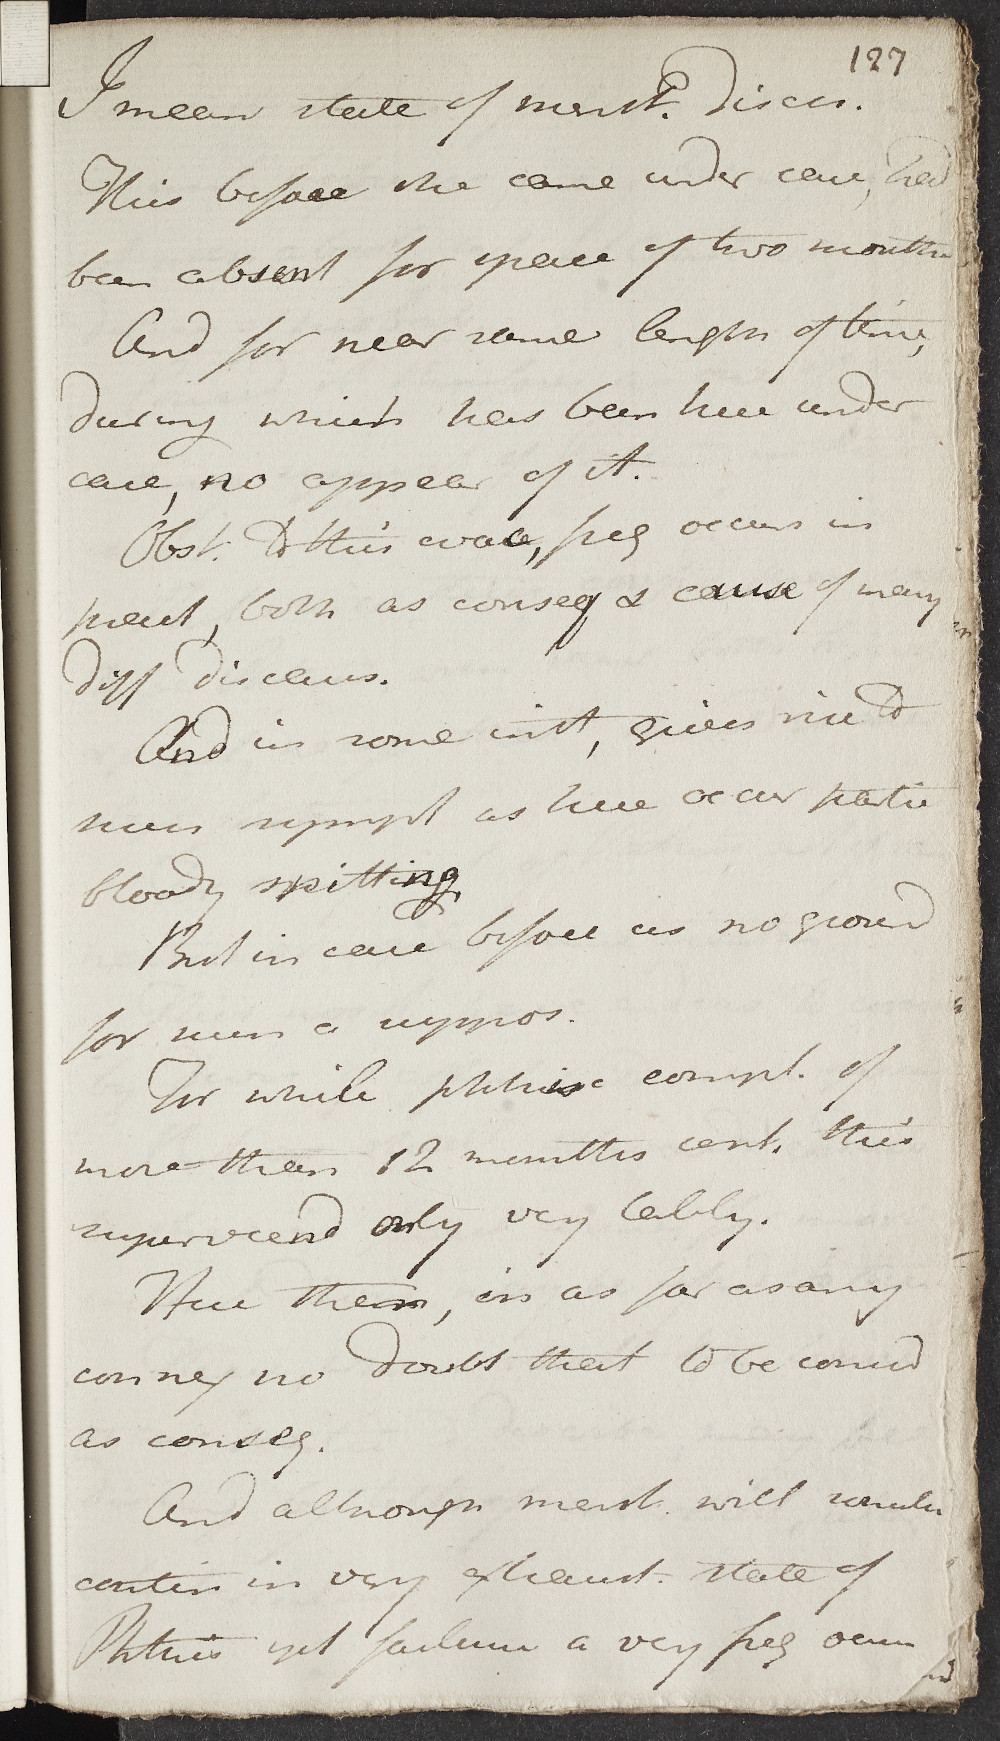 127
I mean state of menst. Discs.
This before she came under care, had
been absent for space of two months
And for near same length of time,
during which has been here under
care, no appear of it.
Obst. to this evac, freq occurs in
pract, both as conseq & cause of many
diff diseases.
And in some inst, gives rise to
such sympt as here occur partic
bloody spitting
But in case before us no ground
for such a suppos.
For while phthisic compl. of
more than 12 months cont. this
supervened only very lately.
Here then, in as far as any
connex no doubt that to be consid
as conseq.
And although menst. will sometim
contin in very exhaust. state of
Phthisis yet failure a very freq occur